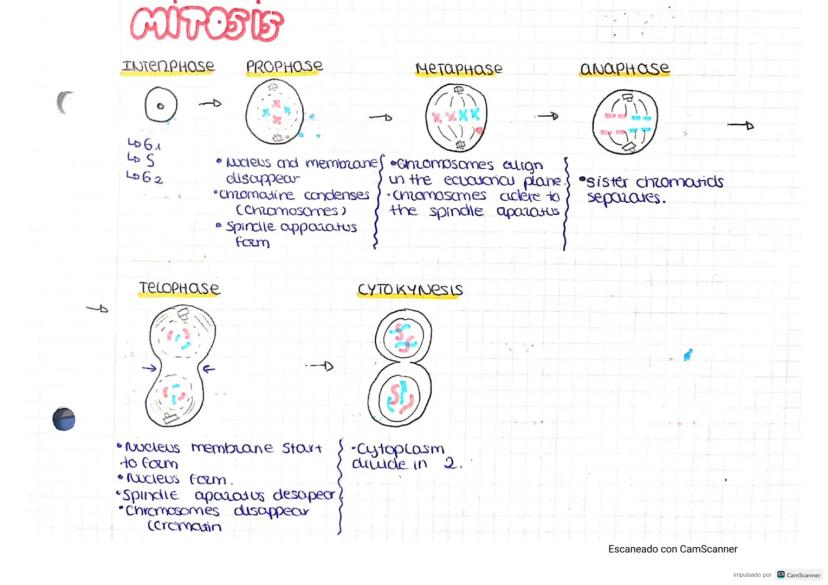 MITOSIS
INTENPHASE
PROPHASE
METAPHASE
ANAPHASE
↳G1
↳S
↳G2
• Nucleus and membrane
disappear
• Chromatine condenses
(Chromosomes)
• Spindle apparatus
form
• Chromosomes align
in the ecuatorial plane.
• Chromosomes adere to
the spindle aparatus
• Sister chromatids
separates.
TELOPHASE
CYTOKYNESIS
• Nucleus membrane start
to form
• Nucleus form.
• Spindle aparatus desapear
• Chromosomes disappear
(cromatin
• Cytoplasm
divide in 2.
Escaneado con CamScanner
Impulsado por CS CamScanner